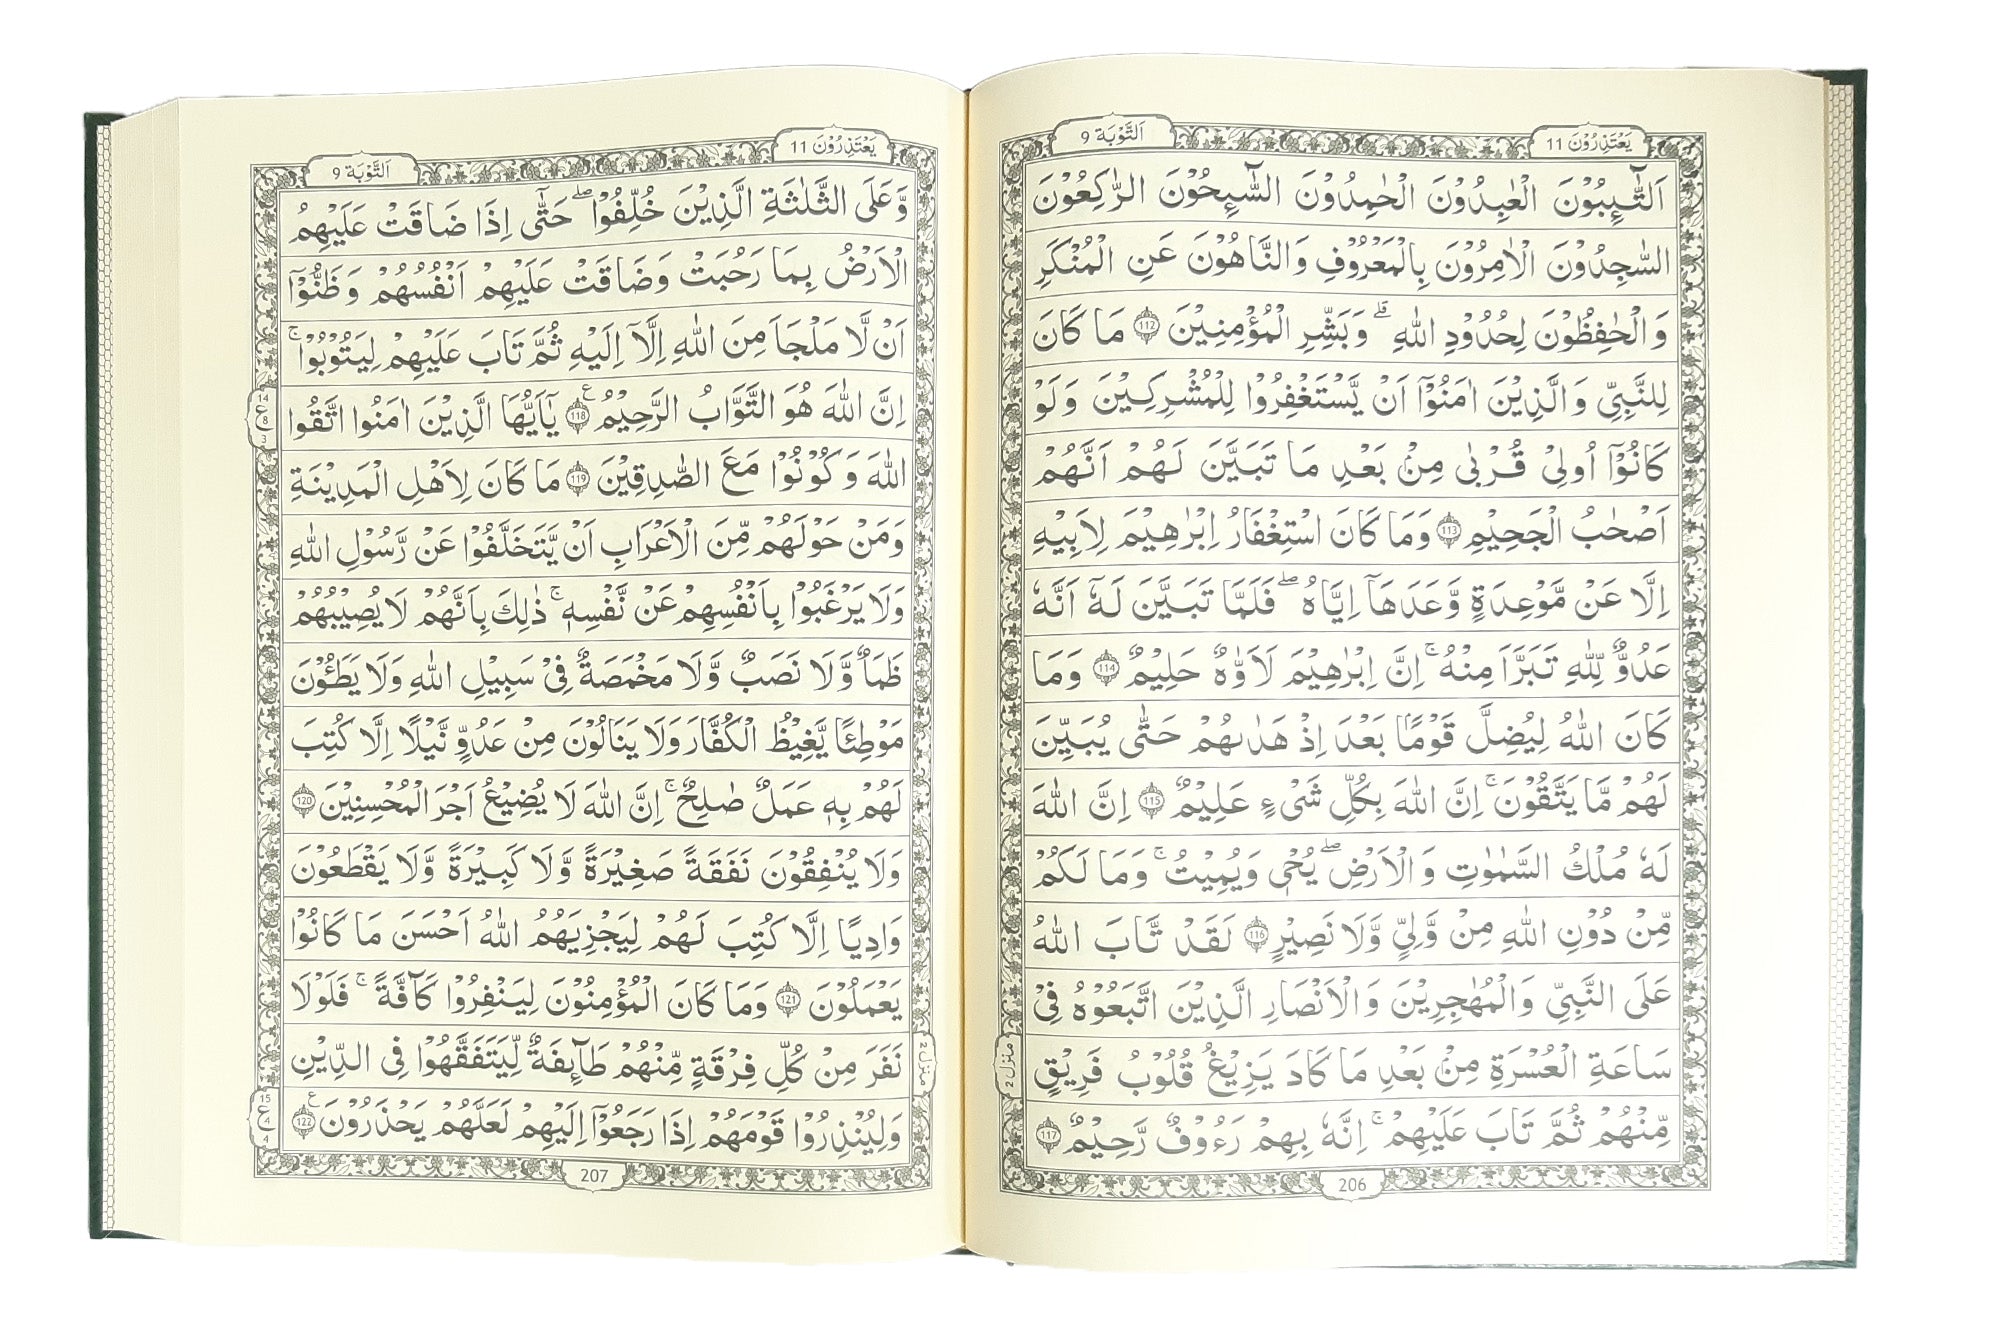 اَلتَّوْبَة 9
يَعْتَذِرُوْنَ 11
اَلتَّآئِبُوْنَ الْعٰبِدُوْنَ الْحٰمِدُوْنَ السَّآئِحُوْنَ الرّٰكِعُوْنَ
السّٰجِدُوْنَ الْاٰمِرُوْنَ بِالْمَعْرُوْفِ وَالنَّاهُوْنَ عَنِ الْمُنْكَرِ
وَالْحٰفِظُوْنَ لِحُدُوْدِ اللّٰهِ ؕ وَبَشِّرِ الْمُؤْمِنِيْنَ 112 مَا كَانَ
لِلنَّبِيِّ وَالَّذِيْنَ اٰمَنُوْٓا اَنْ يَّسْتَغْفِرُوْا لِلْمُشْرِكِيْنَ وَلَوْ
كَانُوْٓا اُولِيْ قُرْبٰى مِنْۢ بَعْدِ مَا تَبَيَّنَ لَهُمْ اَنَّهُمْ
اَصْحٰبُ الْجَحِيْمِ 113 وَمَا كَانَ اسْتِغْفَارُ اِبْرٰهِيْمَ لِاَبِيْهِ
اِلَّا عَنْ مَّوْعِدَةٍ وَّعَدَهَآ اِيَّاهُ ۖ فَلَمَّا تَبَيَّنَ لَهٗٓ اَنَّهٗ
عَدُوٌّ لِّلّٰهِ تَبَرَّاَ مِنْهُ ۚ اِنَّ اِبْرٰهِيْمَ لَاَوَّاهٌ حَلِيْمٌ 114 وَمَا
كَانَ اللّٰهُ لِيُضِلَّ قَوْمًاۢ بَعْدَ اِذْ هَدٰىهُمْ حَتّٰى يُبَيِّنَ
لَهُمْ مَّا يَتَّقُوْنَ ۚ اِنَّ اللّٰهَ بِكُلِّ شَيْءٍ عَلِيْمٌ 115 اِنَّ اللّٰهَ
لَهٗ مُلْكُ السَّمٰوٰتِ وَالْاَرْضِ ۖ يُحْيٖ وَيُمِيْتُ ۚ وَمَا لَكُمْ
مِّنْ دُوْنِ اللّٰهِ مِنْ وَّلِيٍّ وَّلَا نَصِيْرٍ 116 لَقَدْ تَّابَ اللّٰهُ
عَلَى النَّبِيِّ وَالْمُهٰجِرِيْنَ وَالْاَنْصَارِ الَّذِيْنَ اتَّبَعُوْهُ فِيْ
سَاعَةِ الْعُسْرَةِ مِنْۢ بَعْدِ مَا كَادَ يَزِيْغُ قُلُوْبُ فَرِيْقٍ
مِّنْهُمْ ثُمَّ تَابَ عَلَيْهِمْ ۚ اِنَّهٗ بِهِمْ رَءُوْفٌ رَّحِيْمٌ 117
منزل 2
206
اَلتَّوْبَة 9
يَعْتَذِرُوْنَ 11
وَّعَلَى الثَّلٰثَةِ الَّذِيْنَ خُلِّفُوْا ۖ حَتّٰٓى اِذَا ضَاقَتْ عَلَيْهِمُ
الْاَرْضُ بِمَا رَحُبَتْ وَضَاقَتْ عَلَيْهِمْ اَنْفُسُهُمْ وَظَنُّوْٓا
اَنْ لَّا مَلْجَاَ مِنَ اللّٰهِ اِلَّآ اِلَيْهِ ثُمَّ تَابَ عَلَيْهِمْ لِيَتُوْبُوْا ۚ
اِنَّ اللّٰهَ هُوَ التَّوَّابُ الرَّحِيْمُ ع 118 يٰٓاَيُّهَا الَّذِيْنَ اٰمَنُوا اتَّقُوا
اللّٰهَ وَكُوْنُوْا مَعَ الصّٰدِقِيْنَ 119 مَا كَانَ لِاَهْلِ الْمَدِيْنَةِ
وَمَنْ حَوْلَهُمْ مِّنَ الْاَعْرَابِ اَنْ يَّتَخَلَّفُوْا عَنْ رَّسُوْلِ اللّٰهِ
وَلَا يَرْغَبُوْا بِاَنْفُسِهِمْ عَنْ نَّفْسِهٖ ۚ ذٰلِكَ بِاَنَّهُمْ لَا يُصِيْبُهُمْ
ظَمَاٌ وَّلَا نَصَبٌ وَّلَا مَخْمَصَةٌ فِيْ سَبِيْلِ اللّٰهِ وَلَا يَطَـُٔوْنَ
مَوْطِئًا يَّغِيْظُ الْكُفَّارَ وَلَا يَنَالُوْنَ مِنْ عَدُوٍّ نَّيْلًا اِلَّا كُتِبَ
لَهُمْ بِهٖ عَمَلٌ صٰلِحٌ ۚ اِنَّ اللّٰهَ لَا يُضِيْعُ اَجْرَ الْمُحْسِنِيْنَ 120
وَلَا يُنْفِقُوْنَ نَفَقَةً صَغِيْرَةً وَّلَا كَبِيْرَةً وَّلَا يَقْطَعُوْنَ
وَادِيًا اِلَّا كُتِبَ لَهُمْ لِيَجْزِيَهُمُ اللّٰهُ اَحْسَنَ مَا كَانُوْا
يَعْمَلُوْنَ 121 وَمَا كَانَ الْمُؤْمِنُوْنَ لِيَنْفِرُوْا كَآفَّةً ۚ فَلَوْلَا
نَفَرَ مِنْ كُلِّ فِرْقَةٍ مِّنْهُمْ طَآئِفَةٌ لِّيَتَفَقَّهُوْا فِى الدِّيْنِ
وَلِيُنْذِرُوْا قَوْمَهُمْ اِذَا رَجَعُوْٓا اِلَيْهِمْ لَعَلَّهُمْ يَحْذَرُوْنَ ع 122
14
ع
8
3
15
ع
4
4
منزل 2
207